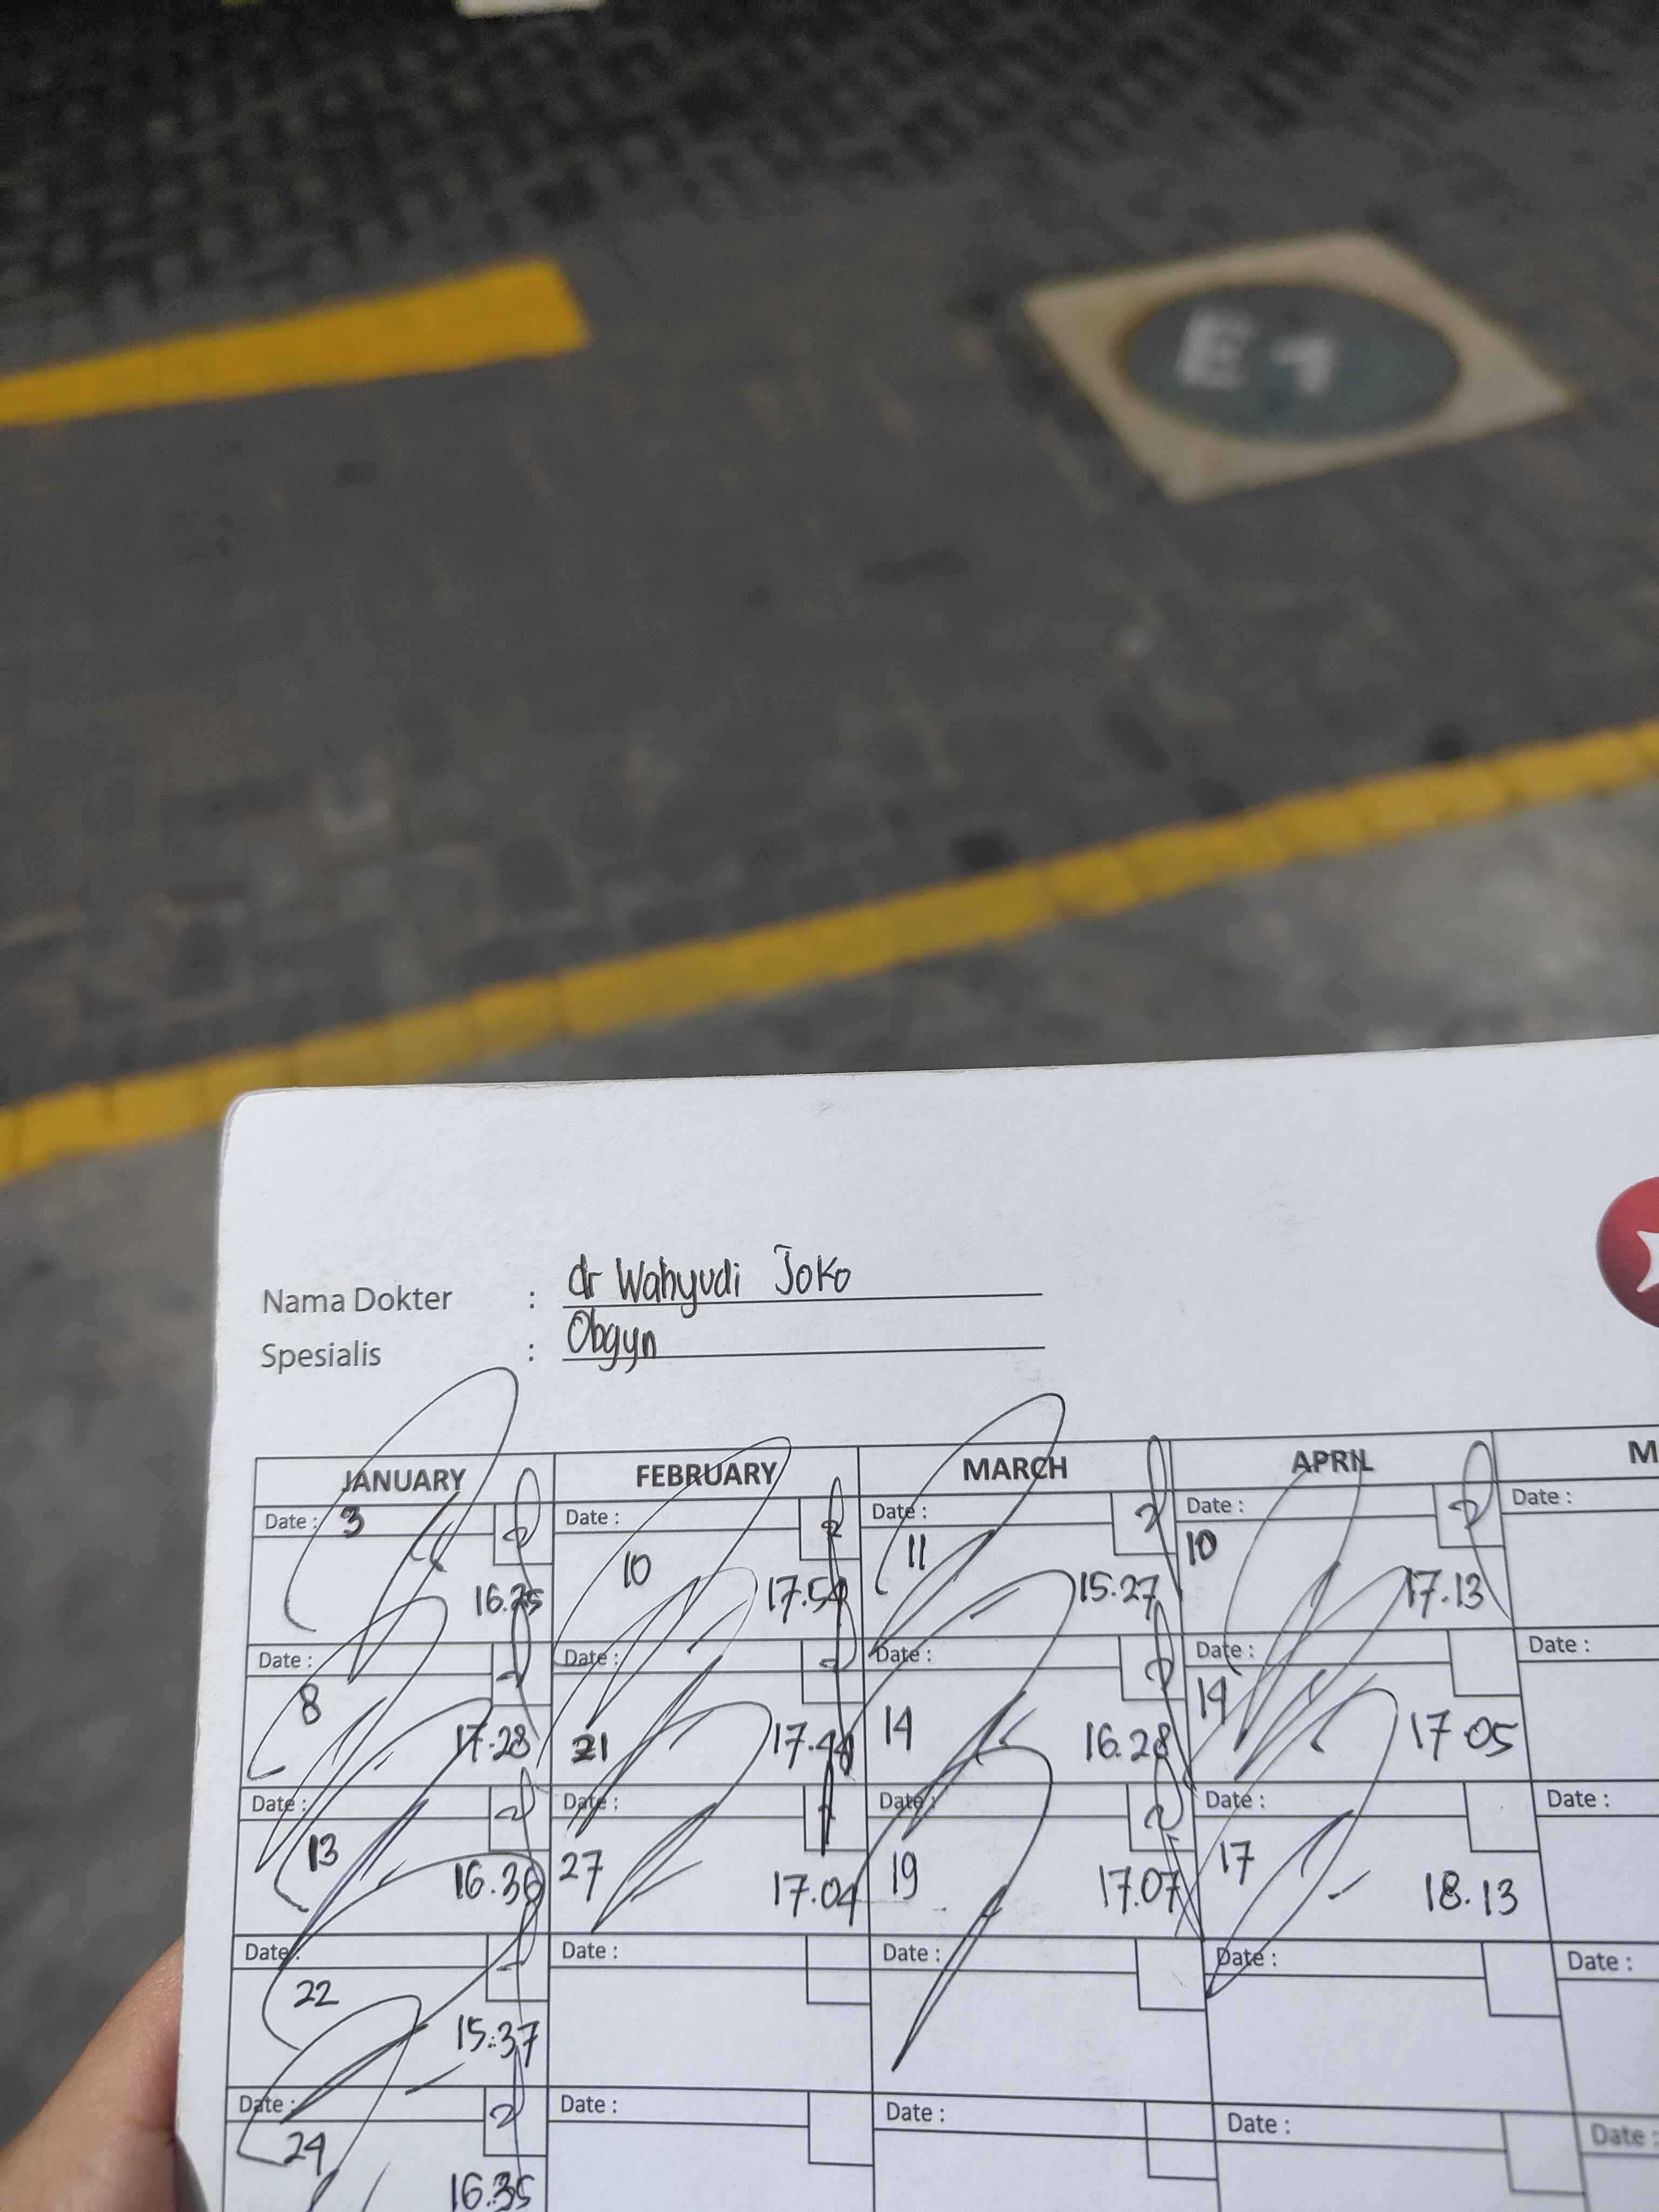 E1
Nama Dokter : dr Wahyudi Joko
Spesialis : Obgyn
JANUARY FEBRUARY MARCH APRIL M
Date : 3 Date : Date : Date : Date :
10 11 10
16.25 17.54 15.27 17.13
Date : Date : Date : Date : Date :
8 21 14 14
17.28 17.44 16.28 17.05
Date : Date : Date : Date : Date :
13 27 19 17
16.36 17.04 17.07 18.13
Date : Date : Date : Date : Date :
22
15:37
Date : Date : Date : Date : Date :
24
16.35